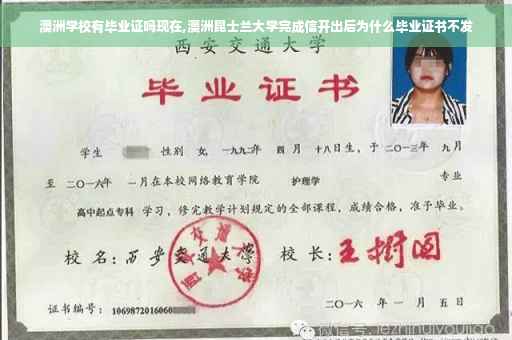 澳洲学校有毕业证吗现在,澳洲昆士兰大学完成信开出后为什么毕业证书不发
西安交通大学
毕业证书
学生 性别 女,一九九二年 四月 十八日生,于二〇一三年 九月
至 二〇一六年 一月在本校网络教育学院 护理学 专业
高中起点专科 学习,修完教学计划规定的全部课程,成绩合格,准予毕业。
校名:西安交通大学 校长:王树国
西安交通大学
证书编号:1069872016060
二〇一六年 一月 五日
微信号:jezhihuiyoujiao